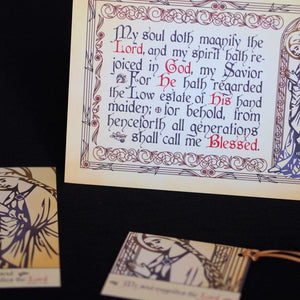 My soul doth magnify the
Lord, and my spirit hath re-
joiced in God, my Savior
For He hath regarded
the Low estate of His hand
maiden; for behold, from
henceforth all generations
shall call me Blessed.
soul
the Lord
My soul magnifies the Lord